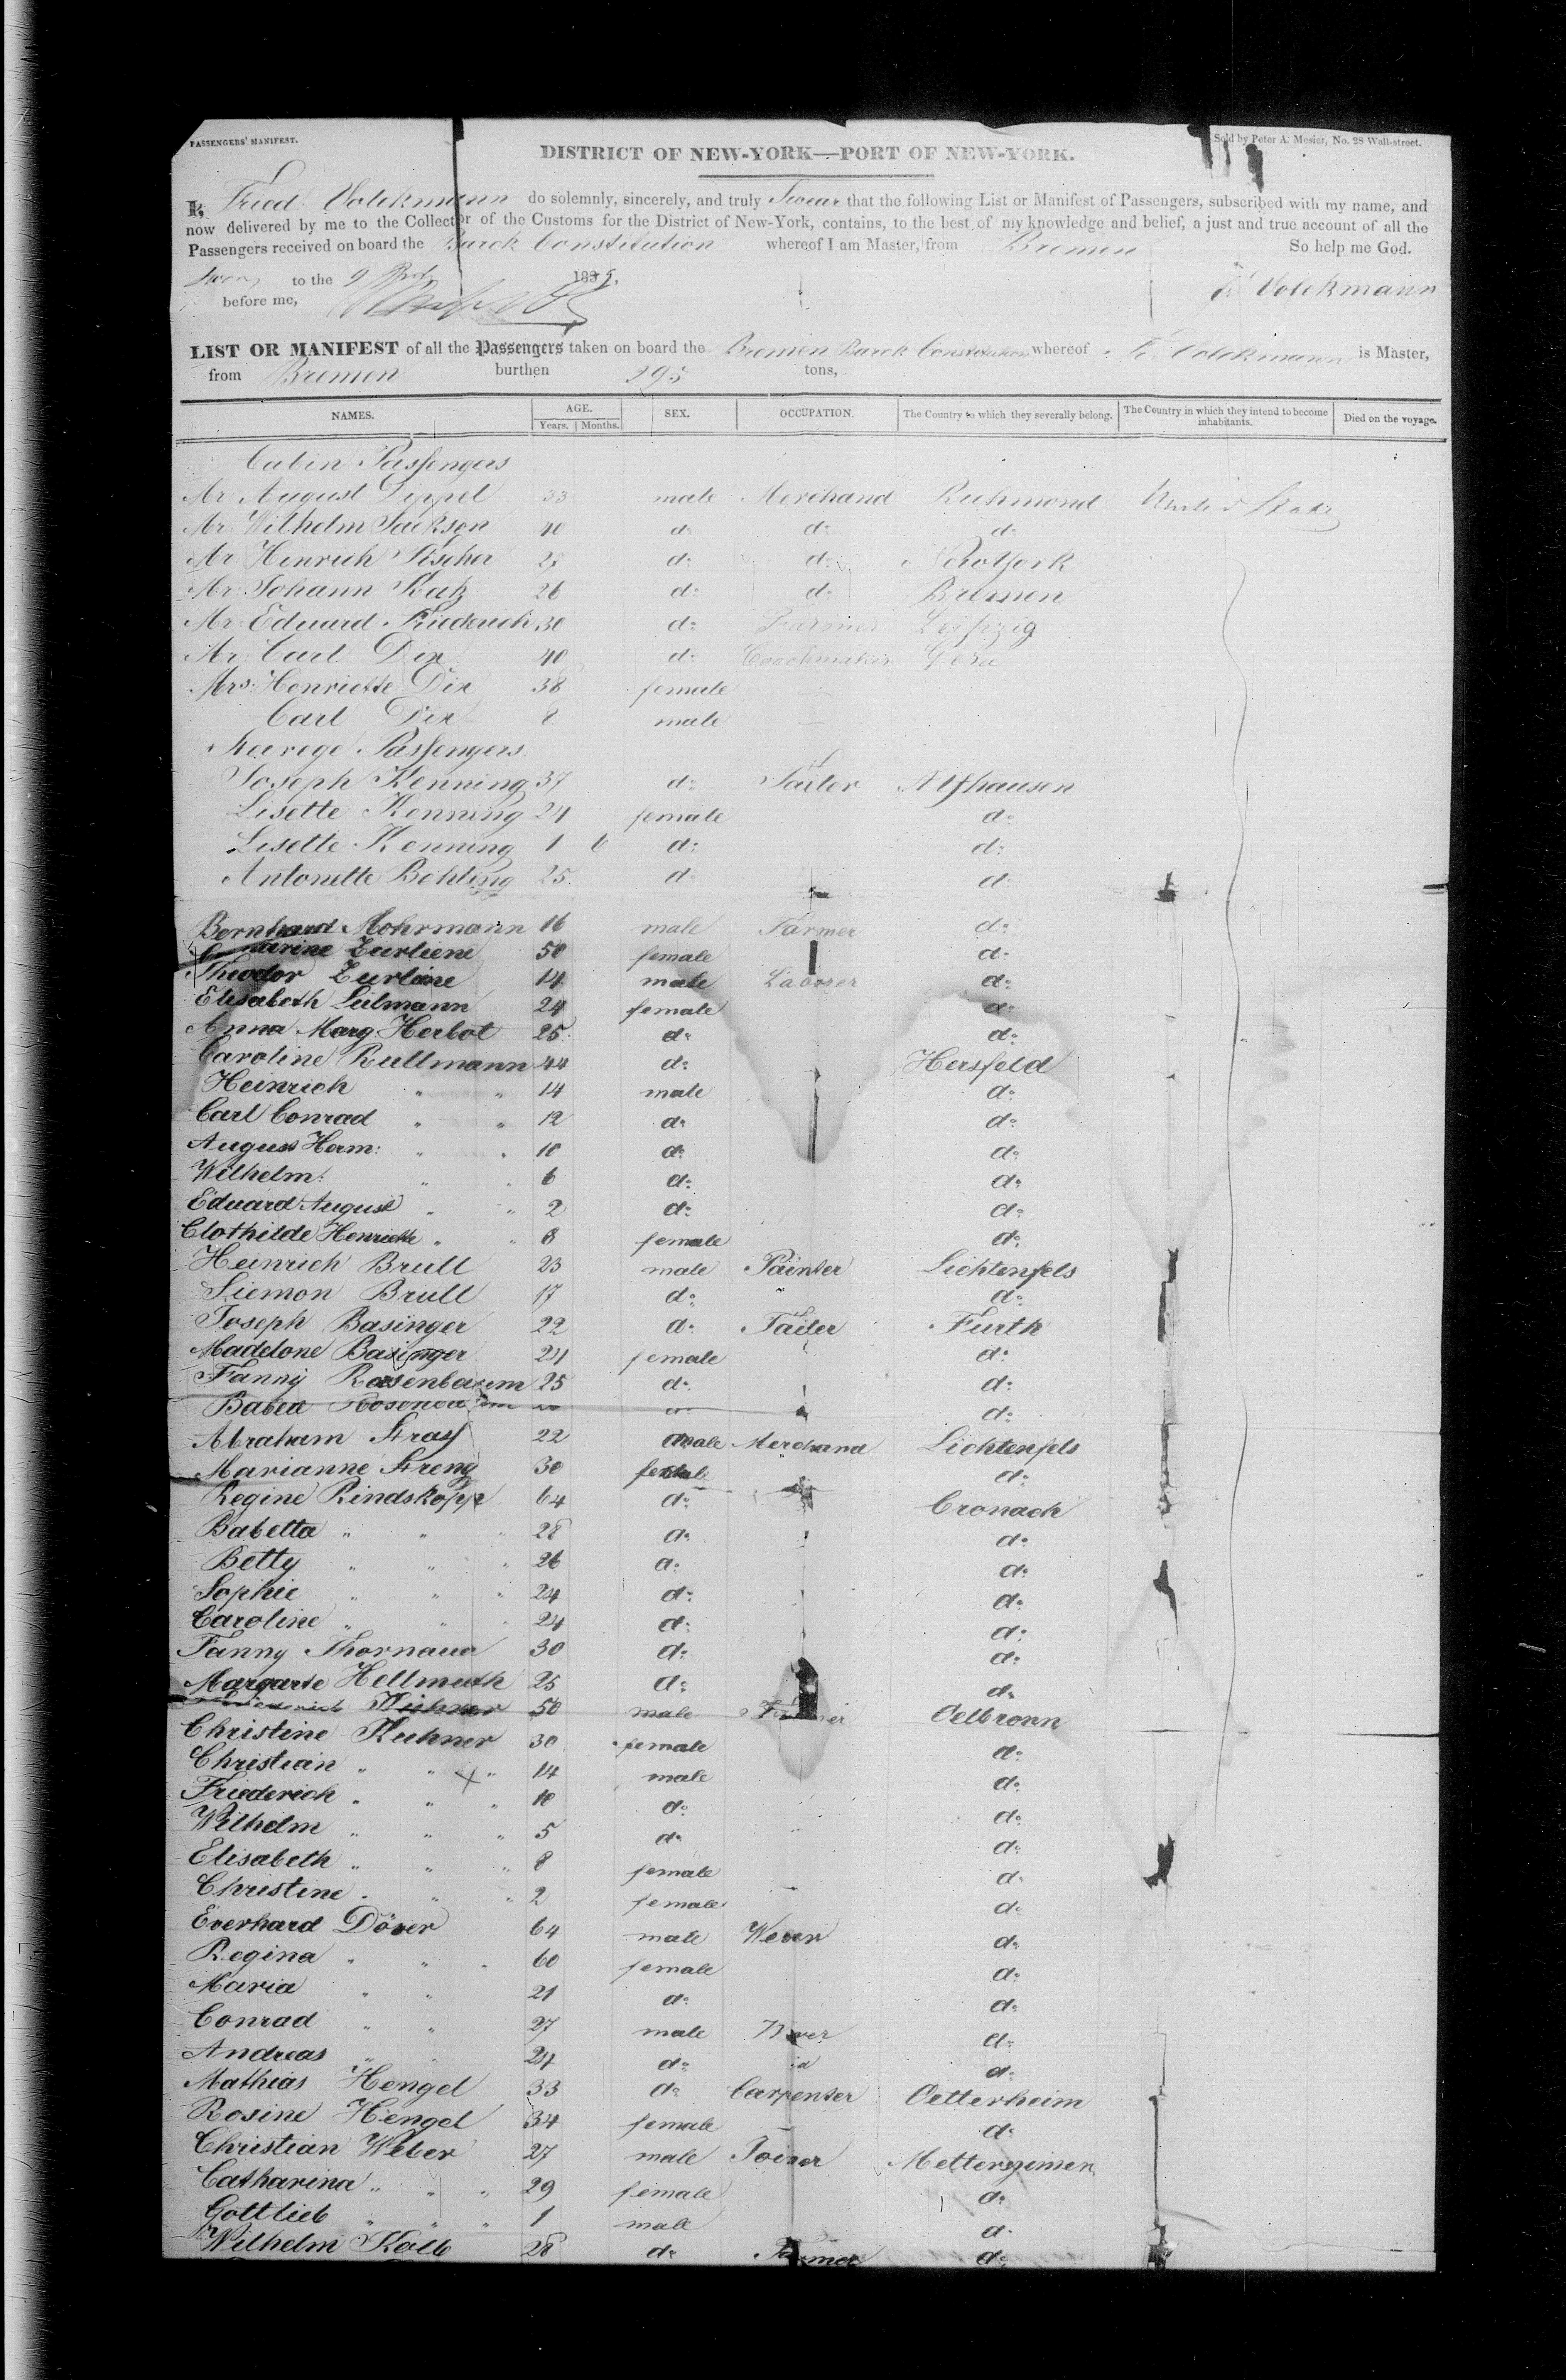 PASSENGERS' MANIFEST.
Sold by Peter A. Mesier, No. 28 Wall-street.
DISTRICT OF NEW-YORK—PORT OF NEW-YORK.
I, Fried. Volckmann do solemnly, sincerely, and truly Swear that the following List or Manifest of Passengers, subscribed with my name, and
now delivered by me to the Collector of the Customs for the District of New-York, contains, to the best of my knowledge and belief, a just and true account of all the
Passengers received on board the Barck Constitution whereof I am Master, from Bremen So help me God.
Sworn to the 9 1839
before me, F. Volckmann
LIST OR MANIFEST of all the Passengers taken on board the Bremen Barck Constitution whereof F. Volckmann is Master,
from Bremen burthen 295 tons,
NAMES. AGE. Years. Months. SEX. OCCUPATION. The Country to which they severally belong. The Country in which they intend to become inhabitants. Died on the voyage.
Cabin Passengers
Mr. August Dippel 33 male Merchand Richmond United States
Mr. Wilhelm Jackson 40 d: d: d:
Mr. Heinrich Fischer d: d: New York
Mr. Johann Katz 26 d: d: Bremen
Mr. Eduard Friederich 30 d: Farmer Leipzig
Mr. Carl Dix 40 d: Coachmaker Gera
Mrs. Henriette Dix 38 female
Carl Dix 8 male
Steerege Passengers.
Joseph Kenning 37 d: Tailor Alfhausen
Lisette Kenning 24 female d:
Lisette Kenning 1 6 d: d:
Antonette Bohling 25 d: d:
Bernhard Mohrmann 16 male Farmer d:
Zurliene 50 female d:
Theodor Zurliene 14 male Laborer d:
Elisabeth Leilmann 24 female d:
Anna Marg. Herbot 25 d: d:
Caroline Rullmann 44 d: Hersfeld
Heinrich " " 14 male d:
Carl Conrad " " 12 d: d:
August Herm: " " 10 d: d:
Wilhelm: " " 6 d: d:
Eduard August " " 2 d: d:
Clothilde Henriette " " 8 female d:
Heinrich Brull 23 male Painter Lichtenfels
Siemon Brull 17 d: d:
Joseph Basinger 22 d: Tailer Furth
Madelone Basinger 24 female d:
Fanny Rosenbaum 25 d: d:
Babea Rosenbaum d:
Abraham Strass 22 male Merchand Lichtenfels
Marianne Streng 30 female d:
Regine Rindskopp 64 d: Cronach
Babetta " " " 28 d: d:
Betty " " " 26 d: d:
Sophie " " " 24 d: d:
Caroline " " " 24 d: d:
Fanny Thornaua 30 d: d:
Margarte Hellmuth 25 d: d:
Kuhner 50 male Oelbronn
Christine Kuhner 30 female d:
Christian " " " 14 male d:
Friederich " " " 10 d: d:
Wilhelm " " " 5 d: d:
Elisabeth " " " 8 female d:
Christine " " " 2 female d:
Everhard Döver 64 male Wever d:
Regina " " " 60 female d:
Maria " " 21 d: d:
Conrad " " 27 male d:
Andreas " " 24 d: d:
Mathias Hengel 33 d: Carpenter Oetterheim
Rosine Hengel 34 female d:
Christian Weber 27 male Joiner Metterzimern
Catharina " " " 29 female d:
Gottlieb " " " 1 male d:
Wilhelm Kolb 28 d: Farmer d: